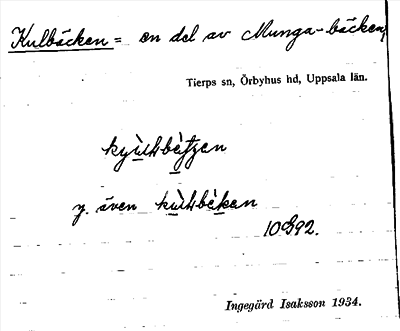 Kulbäcken = en del av Munga-bäcken,
Tierps sn, Örbyhus hd, Uppsala län.
y. även
10992.
Ingegärd Isaksson 1934.